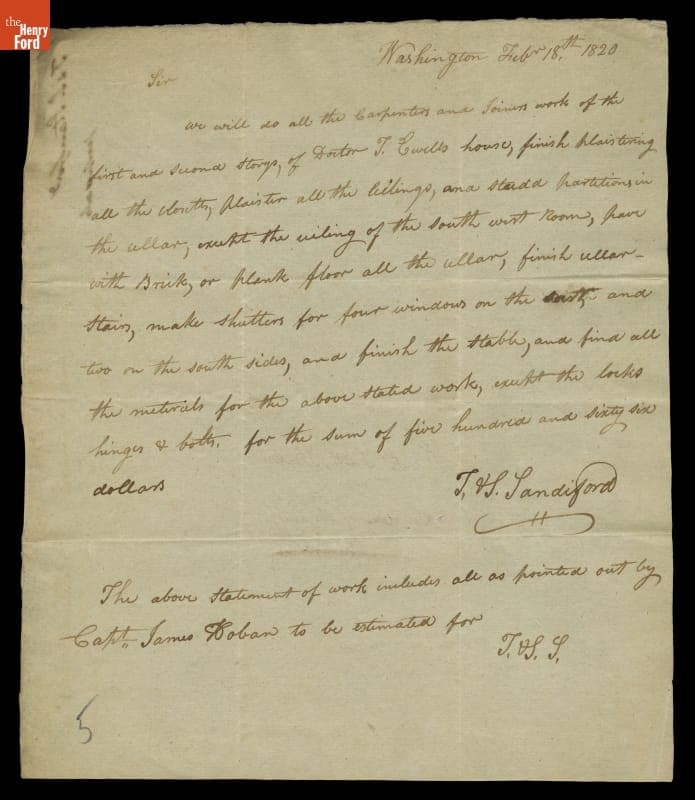 the
Henry
Ford
Washington Febr 18.th 1820
Sir
we will do all the Carpenters and Joiners work of the
first and second storys, of Doctor T. Ewells house, finish plaistering
all the closetts, plaister all the ceilings, and studd partitions, in
the cellar, except the ceiling of the south west Room, pave
with Brick, or plank floor all the cellar, finish cellar-
stairs, make shutters for four windows on the east, and
two on the south sides, and finish the stable, and find all
the meterials for the above stated work, except the locks
hinges & bolts. for the sum of five hundred and sixty six
dollars
T. & S. Sandiford
The above statement of work includes all as pointed out by
Capt. James Hoban to be estimated for
T. & S. S.
5